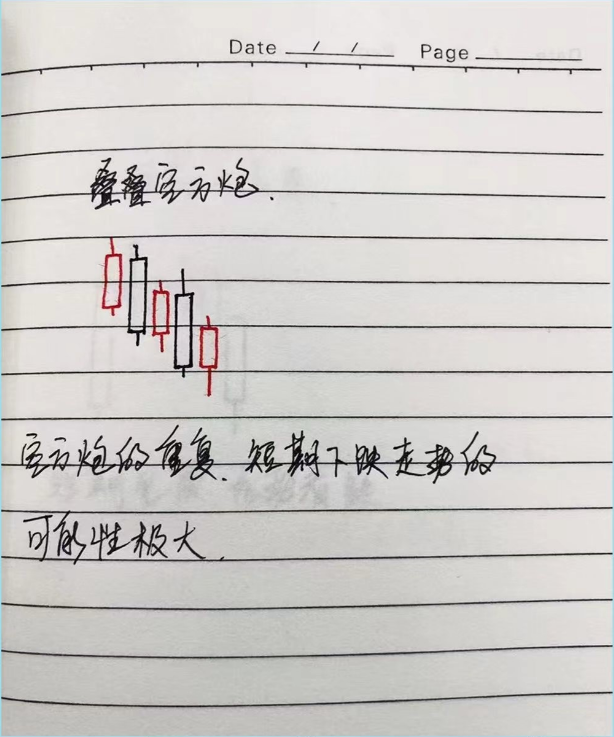 Date / / Page
叠叠空方炮.
空方炮的重复. 短期下跌走势的
可能性极大.